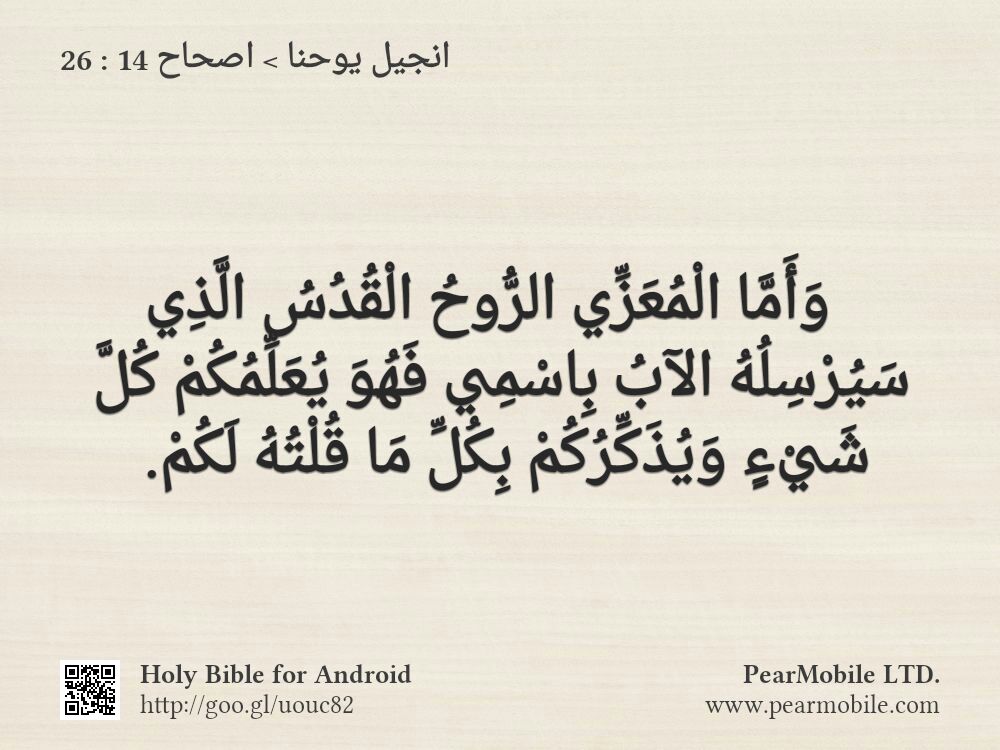 انجيل يوحنا > اصحاح 14 : 26
وَأَمَّا الْمُعَزِّي الرُّوحُ الْقُدُسُ الَّذِي
سَيُرْسِلُهُ الآبُ بِاسْمِي فَهُوَ يُعَلِّمُكُمْ كُلَّ
شَيْءٍ وَيُذَكِّرُكُمْ بِكُلِّ مَا قُلْتُهُ لَكُمْ.
Holy Bible for Android
http://goo.gl/uouc82
PearMobile LTD.
www.pearmobile.com